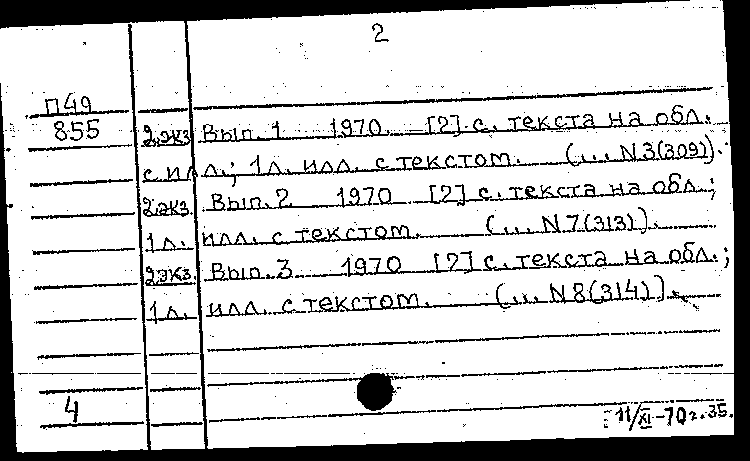 2
П49
855
2экз. Вып. 1 1970. [2] с. текста на обл.
с илл.; 1л. илл. с текстом. (... N3(309)).
2экз. Вып. 2 1970 [2] с. текста на обл.;
1л. илл. с текстом. (... N7(313)).
2экз. Вып. 3 1970 [2] с. текста на обл.;
1л. илл. с текстом. (... N8(314)).
4
11/XI-70г. 35.